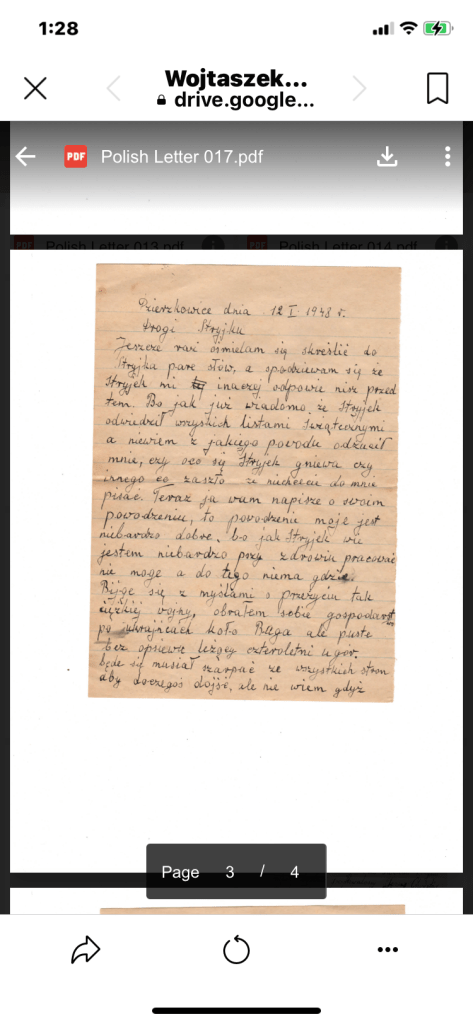 1:28
Wojtaszek...
drive.google...
PDF Polish Letter 017.pdf
PDF Polish Letter 013.pdf PDF Polish Letter 014.pdf
Dzierzkowice dnia 12 I. 1948 r.
drogi Stryjku
Jeszcze raz ośmielam się skreślić do
Stryjka parę słów, a spodziewam się że
Stryjek mi inaczej odpowie nisz przed
tem. Bo jak już wiadomo, że Stryjek
odwiedził wszyskich listami świątecznymi
a niewiem z jakiego powodu odzucił
mnie, czy oco się Stryjek gniewa czy
innego co zaszło że niechcecie do mnie
pisać. Teraz ja wam napisze o swoim
powodzeniu, to powodzenie moje jest
niebardzo dobre, bo jak Stryjek wie
jestem niebardzo przy zdrowiu pracować
nie mogę a do tego niema gdzie.
Bijąc się z myślami o przeżyciu tak
ciężkiej wojny, obrałem sobie gospodarst
po ukrajńcach koło Buga ale puste
bez opsiewu leżący czteroletni ugór.
będę się musiał szarpać ze wszystkich stron
aby doczegoś dojść, ale nie wiem gdyż
Page 3 / 4